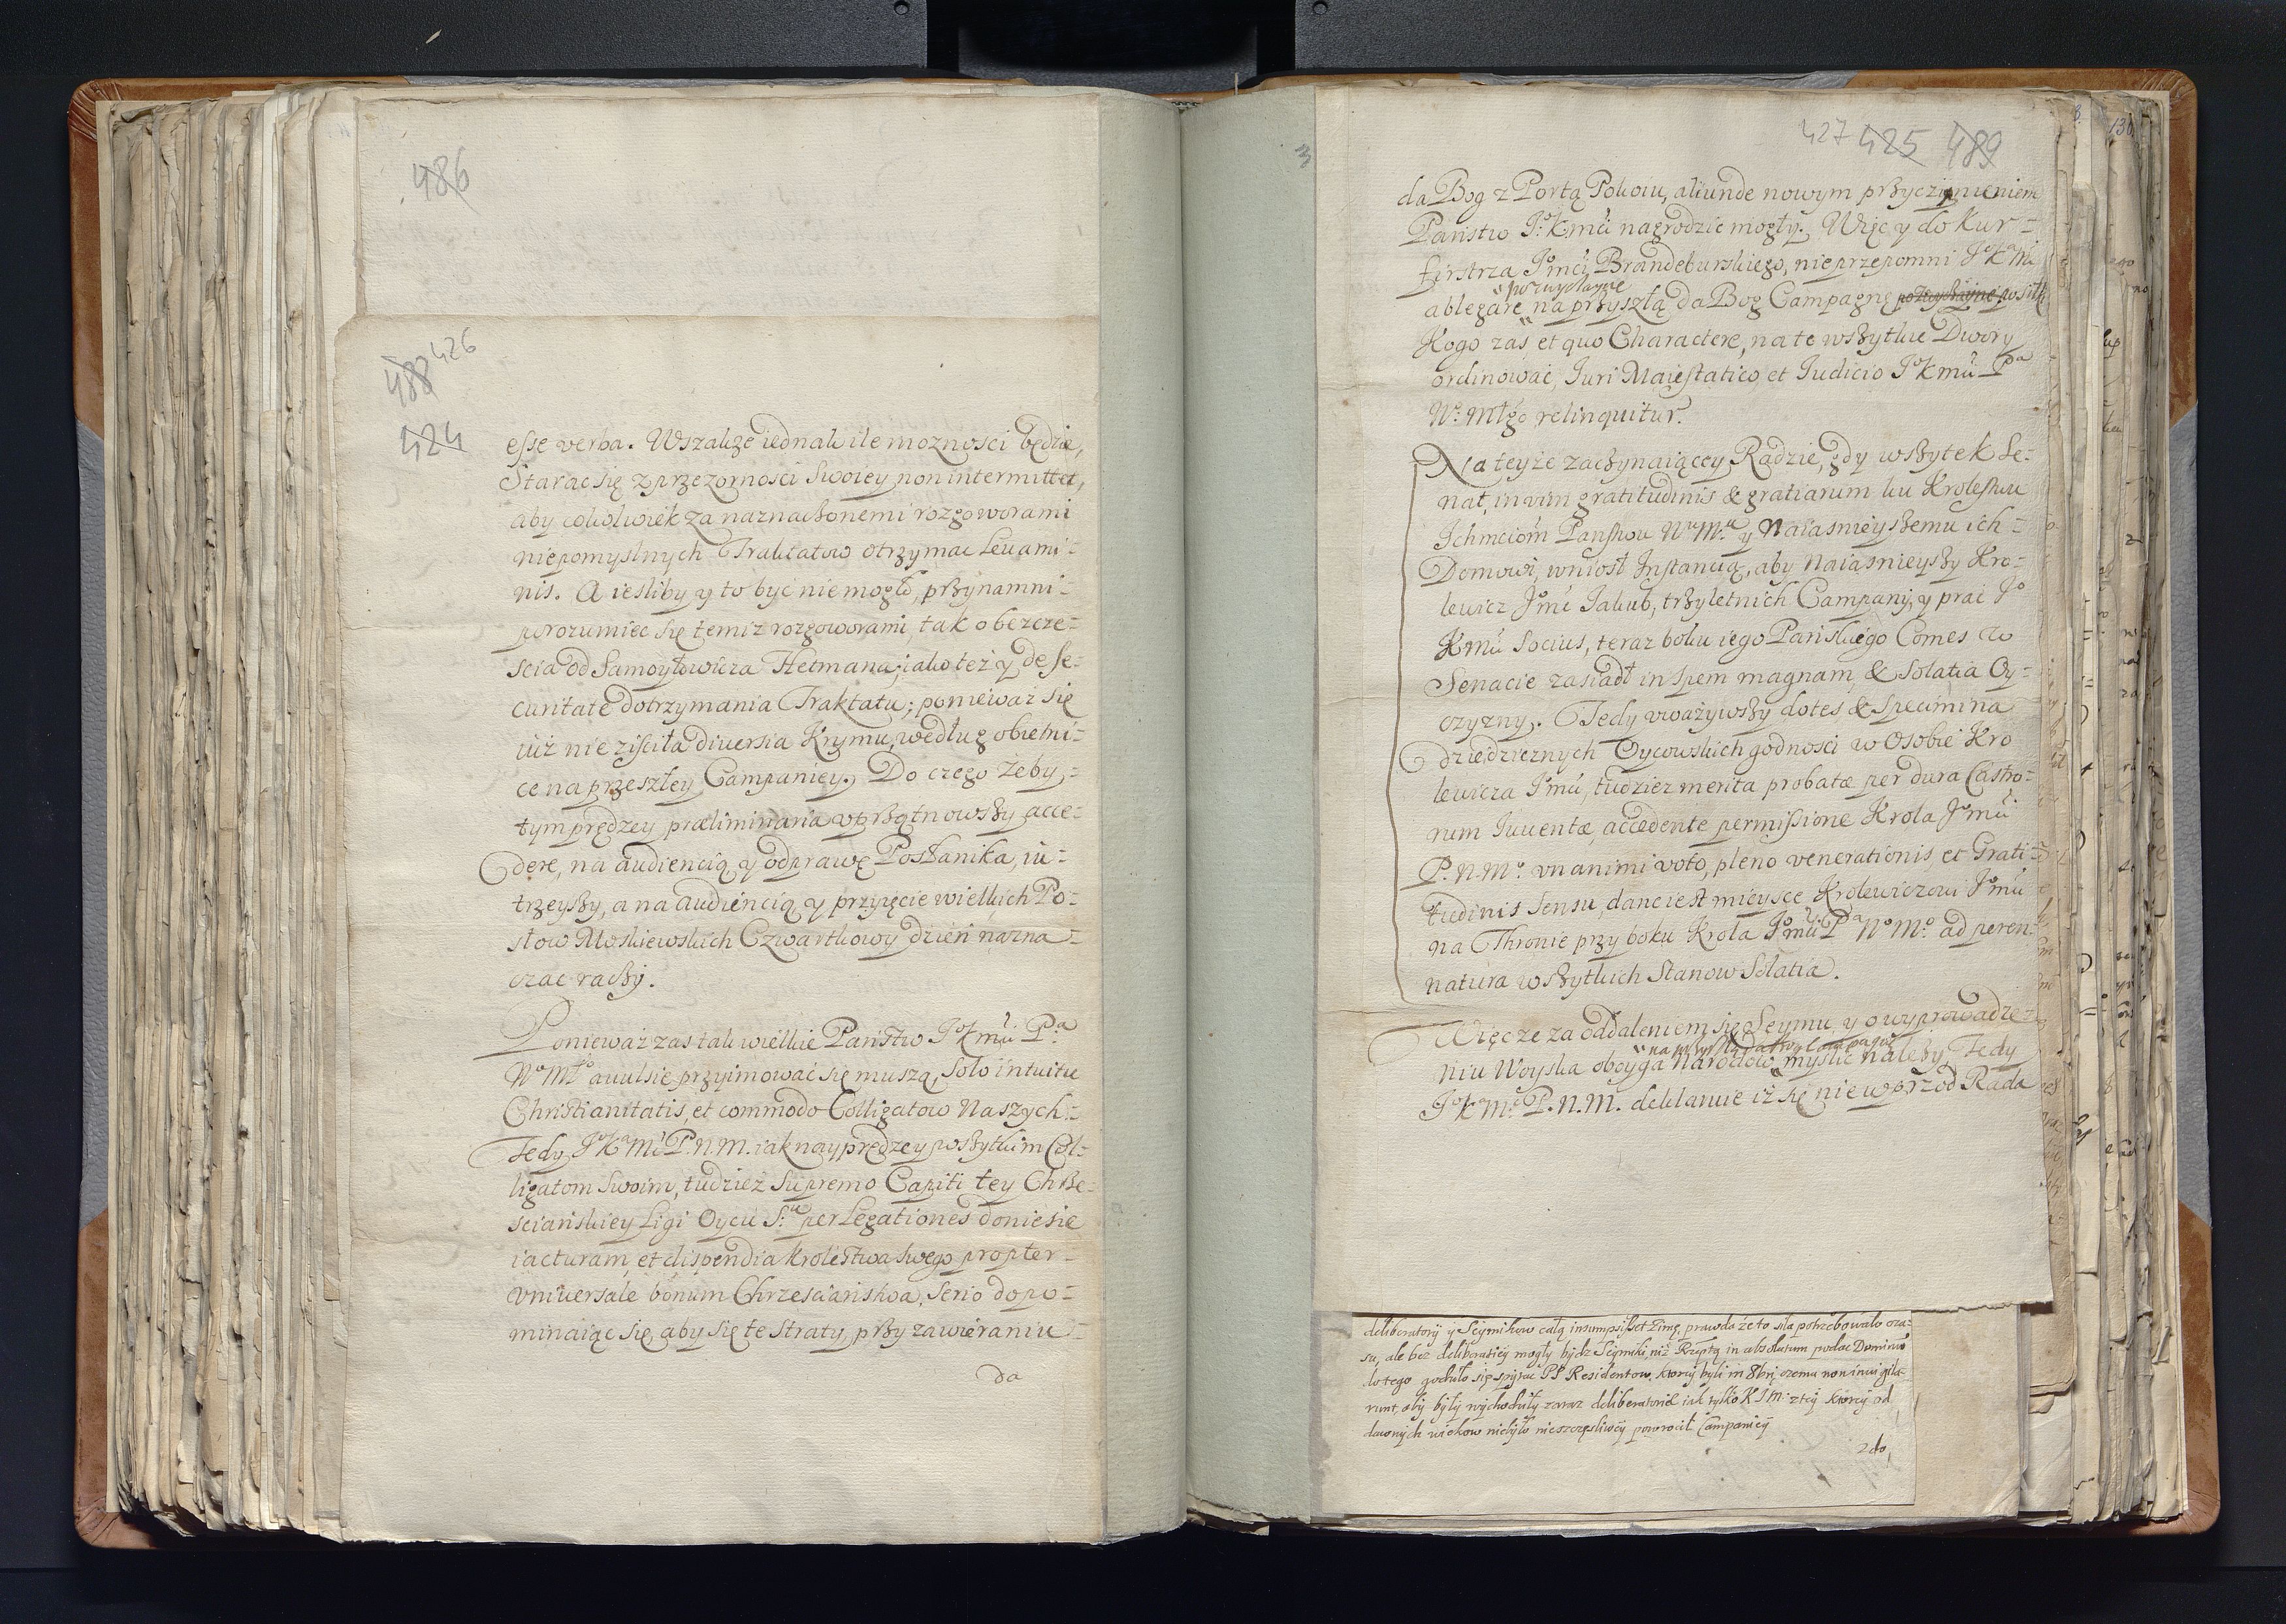 486
488 426
424
esse verba. Wszakże iednak ile moznosci będzie,
Starac się z przezornosci Swoiey non intermittet,
aby cokolwiek za naznaczonemi rozgoworami
niepomyslnych Traktatow otrzymac Levami-
nis. A iesliby y to być niemogło, przynamni-
porozumiec się temiz rozgoworami, tak o bezcze-
scia od Samoyłowicza Hetmana, iako też y de se-
curitate dotrzymania Traktatu; poniewaz się
iuż nie ziscita diversia Krymu, według obietni-
ce na przeszłey Campaniey. Do czego żeby,
tym prędzey præliminaria vprzątnowszy acce-
dere, na audiencią y odprawę Posłanika, iu-
trzeyszy, a na audiencią y przyięcie wielkich Po-
słow Moskiewskich Czwartkowy dzień nazna-
czac raczy.
Ponieważ zas tak wielkie Państw J K mći Pa
No Mgo avulsie przyimować się muszą, solo intuitu
Christianitatis, et commodo Colligatow Naszych.
Tedy J K Mć P. N. M. iak nayprędzey wszytkim Col-
ligatom Swoim, tudzież Supremo Capiti tey Chrze-
sciańskiey Ligi Oycu S. per Legationes doniesie
iacturam, et dispendia krolestwa swego propter
vniversale bonum Chrzescianstwa, serio dopo-
minaiąc się, aby się te straty, przy zawieraniu
da
3
427 425 489
da Bog z Portą Pokoiu, aliunde nowym przyczynieniem
Państw J. K. mći nagrodzić mogły. Więc y do Kur-
firstrza Jmći Brandeburskiego, nieprzepomni J K Mć
pozwyczayne
ablegare na przyszłą da Bog Campagnę pozwyczayne posiłk
Kogo zas, et quo Charactere, na te wszytkie Dwory
ordinować, Iuri Maiestatico, et Iudicio J K mći Pa
No: Młgo relinquitur.
Na teyże zaczynaiącey Radzie, gdy wszytek Se-
nat, in vim gratitudinis & gratiarum ku Krolestwu
Ichmciom Panstwu Nu Mu y Naiasnieyszemu ich-
Domowi, wniosł Instancią, aby Naiasnieyszy Kro-
lewicz Jmć Jakub, trzyletnich Campanij, y prac Jo
Kmći Socius, teraz boku iego Pańskiego Comes w
Senacie zasiadł in spem magnam, & solatia Oy-
czyzny. Tedy vważywszy dotes & specimina
dziedzicznych Oycowskich godnosci w Osobie Kro
lewicza Jmći, tudziez merita probatæ per dura Castro-
rum Iuventæ, accedente permissione Krola Jmći
P. N. Mo. vnanimi voto, pleno venerationis, et Grati-
tudinis sensu, dane iest mieysce Krolewiczowi Jmći
na Thronie przy boku Krola Jmći Pa No Mo. ad peren-
natura wszytkich Stanow Solatia.
Więc ze za oddaleniem się Seymu, y o wyprowadze-
na przyszłą da Bog Campagnę
niu Woyska oboyga Narodow myslić należy, Tedy
J K Mć P. N. M. deklaruie iż się nie wprzod Rada
deliberatoriy y Seymikow całą insumpsisset Zimę, prawda że to siła potrzebowało cza-
su, ale bez deliberatiey mogły bydz Seymiki, niż Rzeptą in absolutum podac Dominiũ
do tego godziło się spytac PP Residentow, ktorzy byli in 8bri, czemu non invigila-
runt, aby były wychodziły zaraz deliberatorie iak tylko K J M z tey ktorey od
dawnych wiekow niebyło nieszczęsliwey powrocił Campaniey
2do